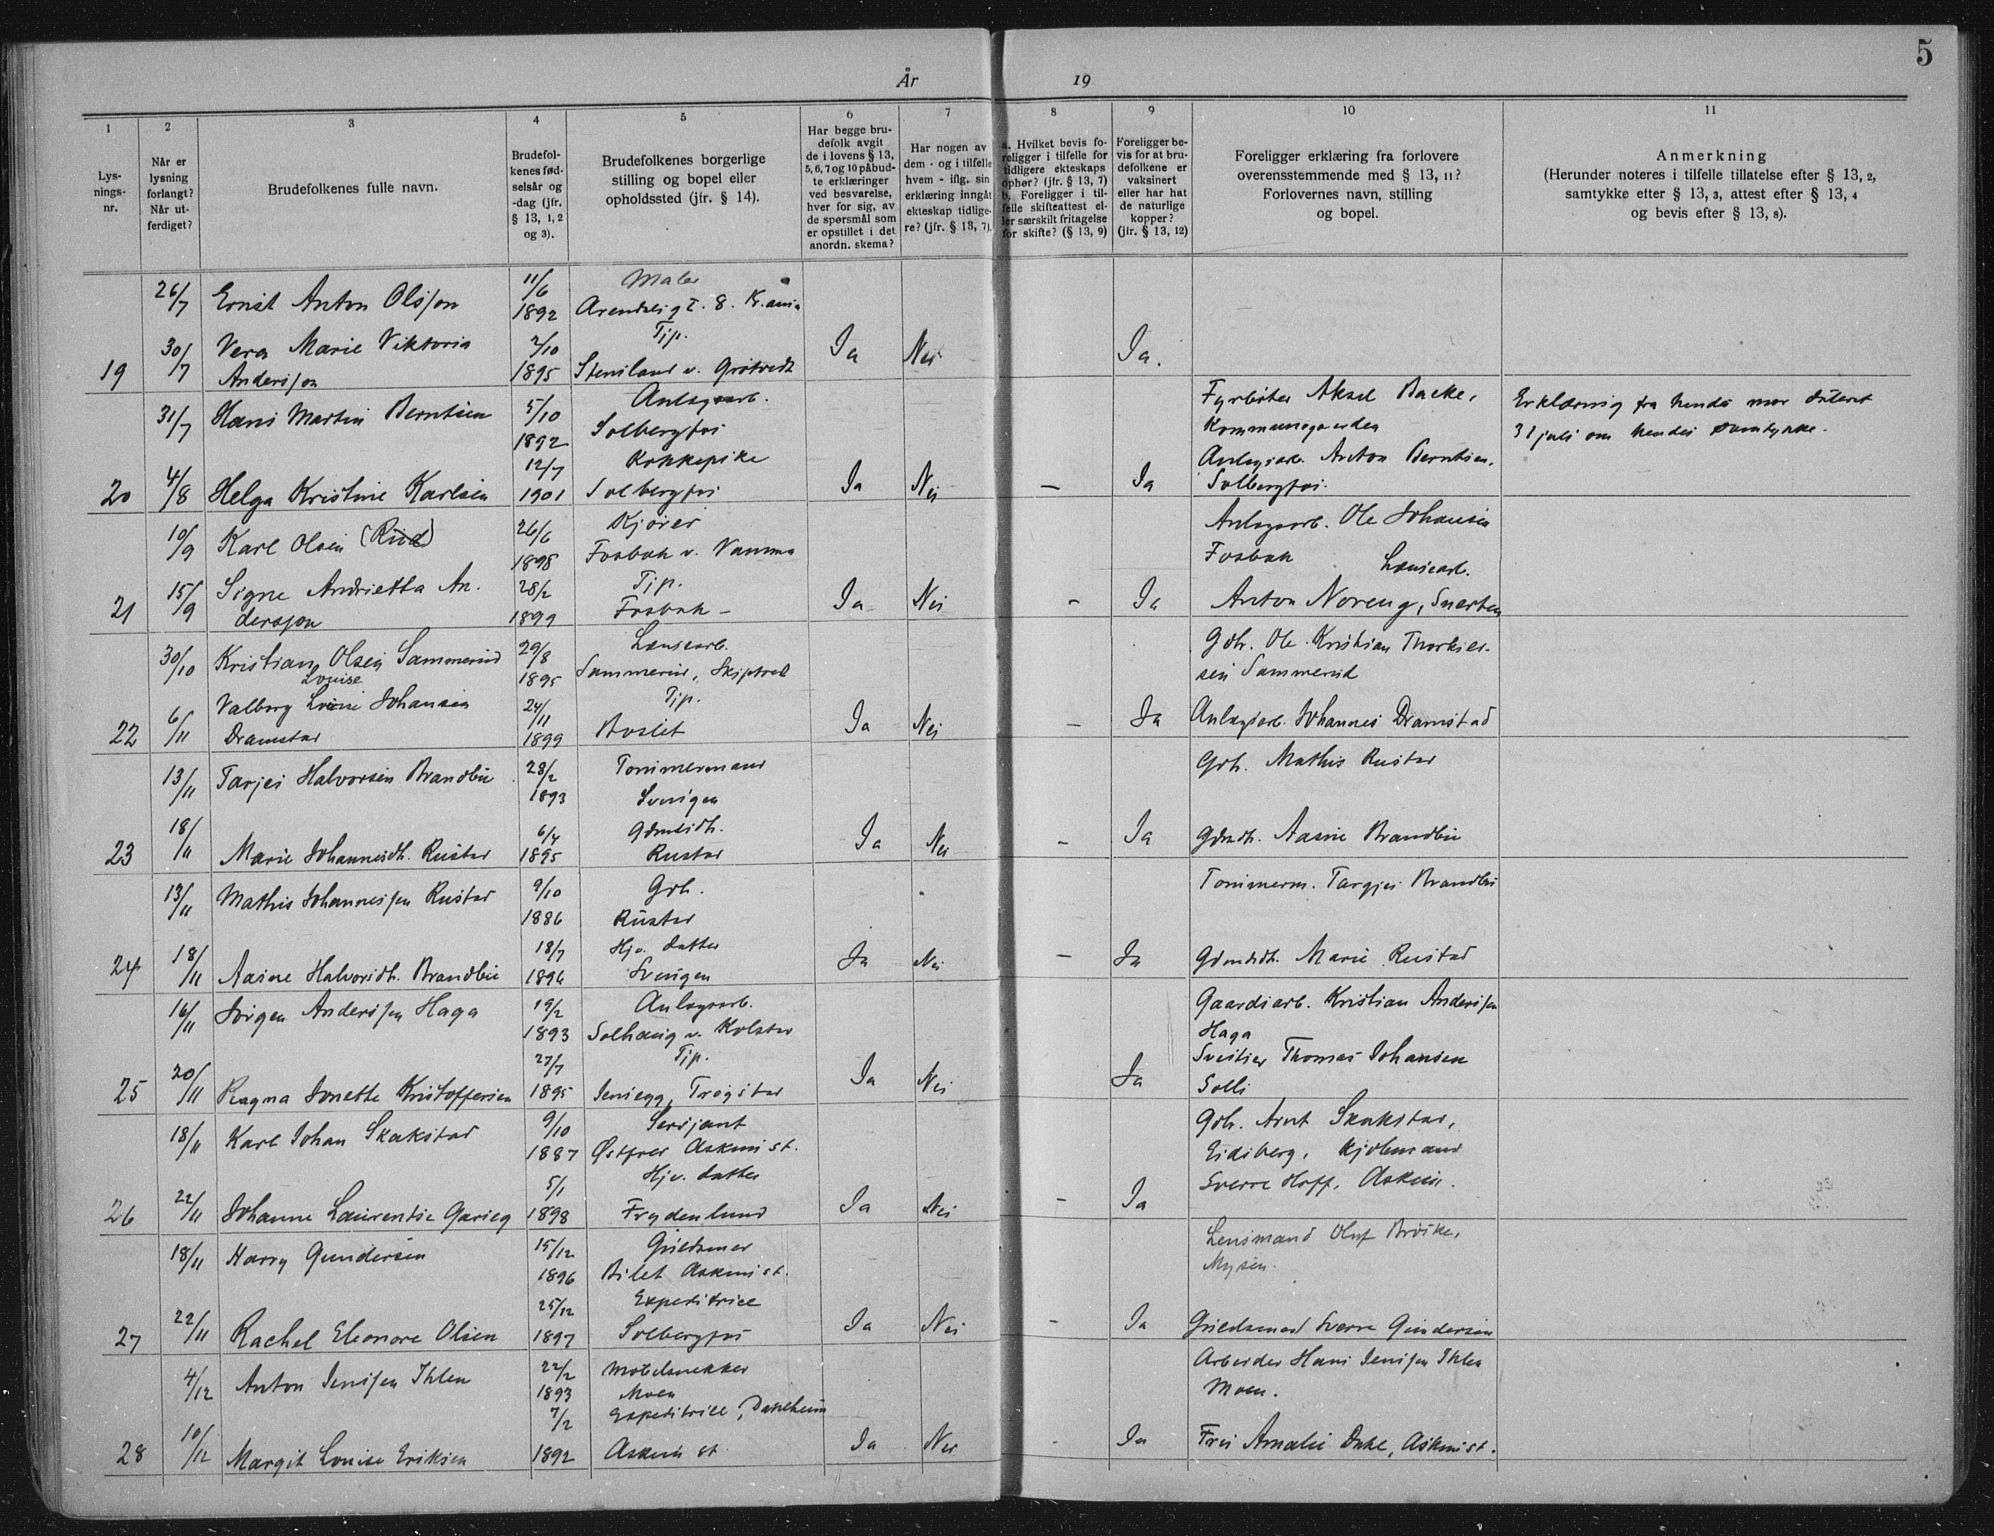 5
År 19
1 2 3 4 5 6 7 8 9 10 11
Lys-
nings-
nr.
Når er
lysning
forlangt?
Når ut-
ferdiget?
Brudefolkenes fulle navn.
Brudefol-
kenes fød-
selsår og
-dag (jfr.
§ 13, 1, 2
og 3).
Brudefolkenes borgerlige
stilling og bopel eller
opholdssted (jfr. § 14).
Har begge bru-
defolk avgit
de i lovens § 13,
5, 6, 7 og 10 påbud-
te erklæringer
ved besvarelse,
hver for sig, av
de spørsmål som
er opstillet i det
anordn. skema?
Har nogen av
dem - og i tilfelle
hvem - iflg. sin
erklæring inngåt
ekteskap tidlige-
re? (jfr. § 13, 7).
a. Hvilket bevis fo-
religger i tilfelle for
tidligere ekteskaps
ophør? (jfr. § 13, 7)
b. Foreligger i til-
felle skifteattest el-
ler særskilt fritagelse
for skifte? (§ 13, 9)
Foreligger be-
vis for at bru-
defolkene er
vaksinert
eller har hat
de naturlige
kopper?
(jfr. § 13, 12)
Foreligger erklæring fra forlovere
overensstemmende med § 13, 11?
Forlovernes navn, stilling
og bopel.
Anmerkning
(Herunder noteres i tilfelle tillatelse efter § 13, 2,
samtykke efter § 13, 3, attest efter § 13, 4
og bevis efter § 13, 8).
26/7 Ernst Anton Olsson 11/6 Maler
1892 Arendalsgt. 8. Kr.ania
30/7 Vera Marie Viktoria 2/10 Tjp. Ja Nei Ja.
19 Andersson 1895 Stensland v. Grøtvedt
31/7 Hans Martin Berntsen 5/10 Anlegsarb. Fyrbøter Aksel Bakke, Erklæring fra hendes mor datert
1892 Solbergfos Kommunegaarden 31 juli om hendes samtykke.
12/7 Kokkepike Anlegsarb. Anton Berntsen,
20 4/8 Helga Kristine Karlsen 1901 Solbergfos Ja Nei — Ja Solbergfos.
10/9 Karl Olsen (Rud) 26/6 Kjører Anlegsarb. Ole Johansen
1898 Fosbak v. Vamma Fosbak Lænsearb.
15/9 Signe Andrietta An- 28/2 Tjp.
21 dersson 1899 Fosbak - Ja Nei - Ja Anton Noreng, Snerten
30/10 Kristian Olsen Sammerud 29/8 Lænsearb. Gdbr. Ole Kristian Thorkier-
Louise 1895 Sammerud, Skiptved sen Sammerud
Valborg Johansen 24/11 Tjp.
22 6/11 Dramstad 1899 Boslet Ja Nei - Ja Anlegsarb. Johannes Dramstad
13/11 Tarjei Halvorsen Brandbu 28/2 Tømmermand Gbr. Mathis Rustad
1893 Sverigen
18/11 6/4 Gdmdsdt.
23 Marie Johannesdt. Rustad 1895 Rustad Ja Nei - Ja Gdmdt. Aasne Brandbu
13/11 Mathis Johannessen Rustad 9/10 Gbr. Tømmerm. Targjei Brandbu
1886 Rustad
18/7 Hjv. datter
24 18/11 Aasne Halvorsdt. Brandbu 1896 Sverigen Ja Nei - Ja Gdmdsdt. Marie Rustad
16/11 Jørgen Anderssen Haga 19/2 Anlegsarb. Gaardsarb. Kristian Anderssen
1893 Solhaug v. Kolstad Haga
27/7 Tjp. Sveiser Thomas Johansen
25 20/11 Ragna Jonette Kristoffersen 1895 Jensegg, Trøgstad Ja Nei Ja Solli
18/11 Karl Johan Skakstad 9/10 Sersjant Gbr. Arnt Skakstad,
1887 Østfrea Askim st. Eidsberg, Kjøbmand
5/1 Hjv. datter Sverre Hoff, Askim.
26 22/11 Johanne Laurentse Garseg 1898 Frydenlund Ja Nei - Ja
18/11 Harry Gundersen 15/12 Guldsmed Lensmand Oluf Brøske,
1896 Bilet Askim st. Mysen.
25/12 Expeditrice
27 22/11 Rachel Eleonore Olsen 1897 Solbergfos Ja Nei - Ja Guldsmed Sverre Gundersen
4/12 Anton Jenssen Ihlen 22/2 Møbelsnekker Arbeider Hans Jenssen Ihlen
1893 Moen Moen.
7/2 Expeditrice, Dahlheim
28 10/12 Margit Louise Eriksen 1892 Askim st Ja Nei - Ja Fru Amalie Dahl, Askim st.